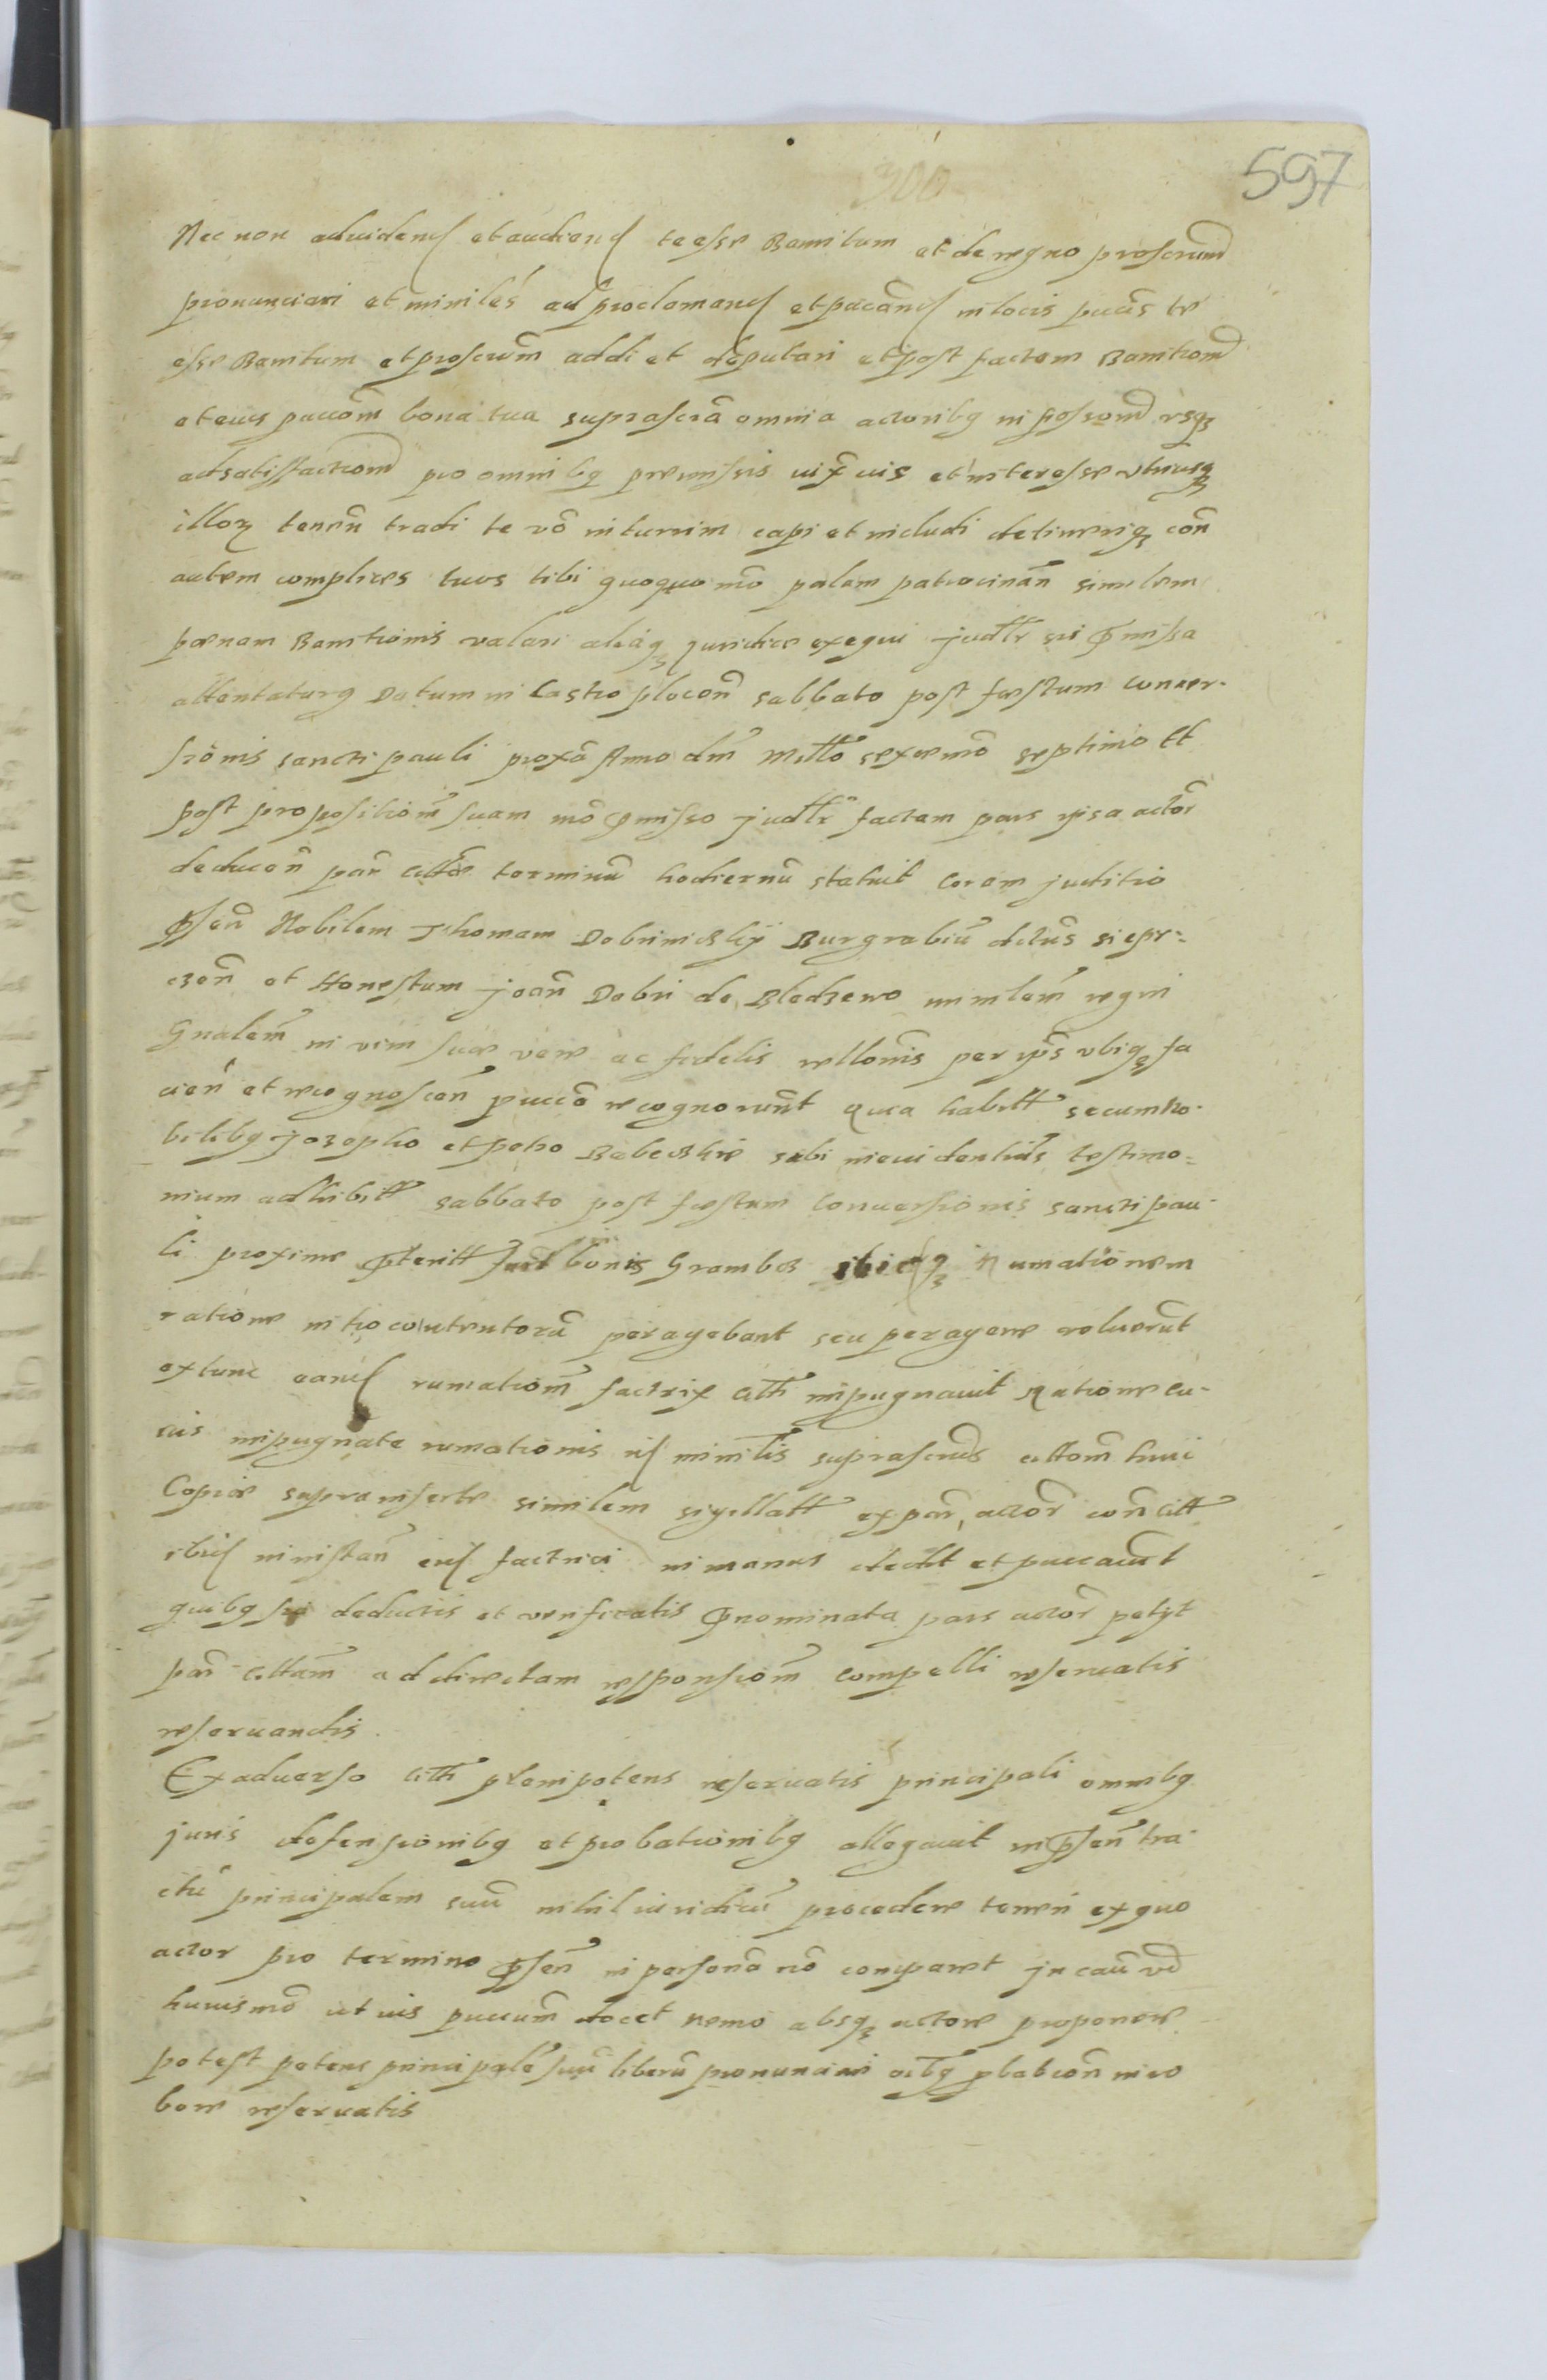 597
300
Nec non ad vidend et audiend te esse Banitum et de regno proscrium
pronunciari et miniles ad proclamand et pucand in locis pucis te
esse Banitum et proscrum addi et deputari et post factam Banitiom
et eius pucom bona tua suprascra omnia actoribq in possiom vsqz
ad satisffactiom pro omnibq premissis iux ius et interesse vtriusqz
illoz tenen tradi te vo in turrim capi et includi detineriqz con
autem complices tuos tibi quoquo mo palam patrocinan similem
pœnam Banitionis valari aliaqz juridice exequi judtr sui pmissa
attentaturq Datum in Castro plocen sabbato post festum Conver-
sionis sancti pauli proxa Anno dni Millo sexcemo septimo Et
post propositiom suam mo pmisso judtr factam pars ipsa actor
deducen par citta terminu hodiernu statuit coram juditio
psen Nobilem Thomam Dobrinickij Burgrabiu dctus siepr=
czen et Honestum joan Dobri de Bledzewo minlem regni
Gnalem in vim suæ veræ ac fidelis rellonis per ips vbiqz fa
cien et recognoscen pucco recognorunt quia habitt secum No-
bilibq Jozepho et petro Babeckie sibi in euidentius testimo=
nium adhibitt sabbato post festum Conuersionis sancti pau-
li proxime pteritt bonis Grambcz ibidqz Rumationem
ratione introcontentoru peragebant seu peragere voluerut
extunc eand rumatiom factrix citti impugnauit Ratione cu-
ius impugnate rumationis id minilis suprascrus cittom huic
Copiæ suprainserte similem sigellatt ex par actor con citt
ibid in instan eid factrici in manus dedit et puccauit
quibq sic deductis et verificatis pnominata pars actor petijt
par cittam ad directam responsiom compelli reservatis
reseruandis.
Ex aduerso citti plenipotens reseruatis principali omnibq
juris defensionibq et probationibq allegauit in psen tra-
ctu principalem suu nihil iuridicu procedere teneri ex quo
actor pro termino psen in persona no comparet jn cau vo
huiusmo ut ius puccum docet nemo absqz actore proponere
potest petens principale suu liberu pronunciari acibq pbation in ro
bore reseruatis